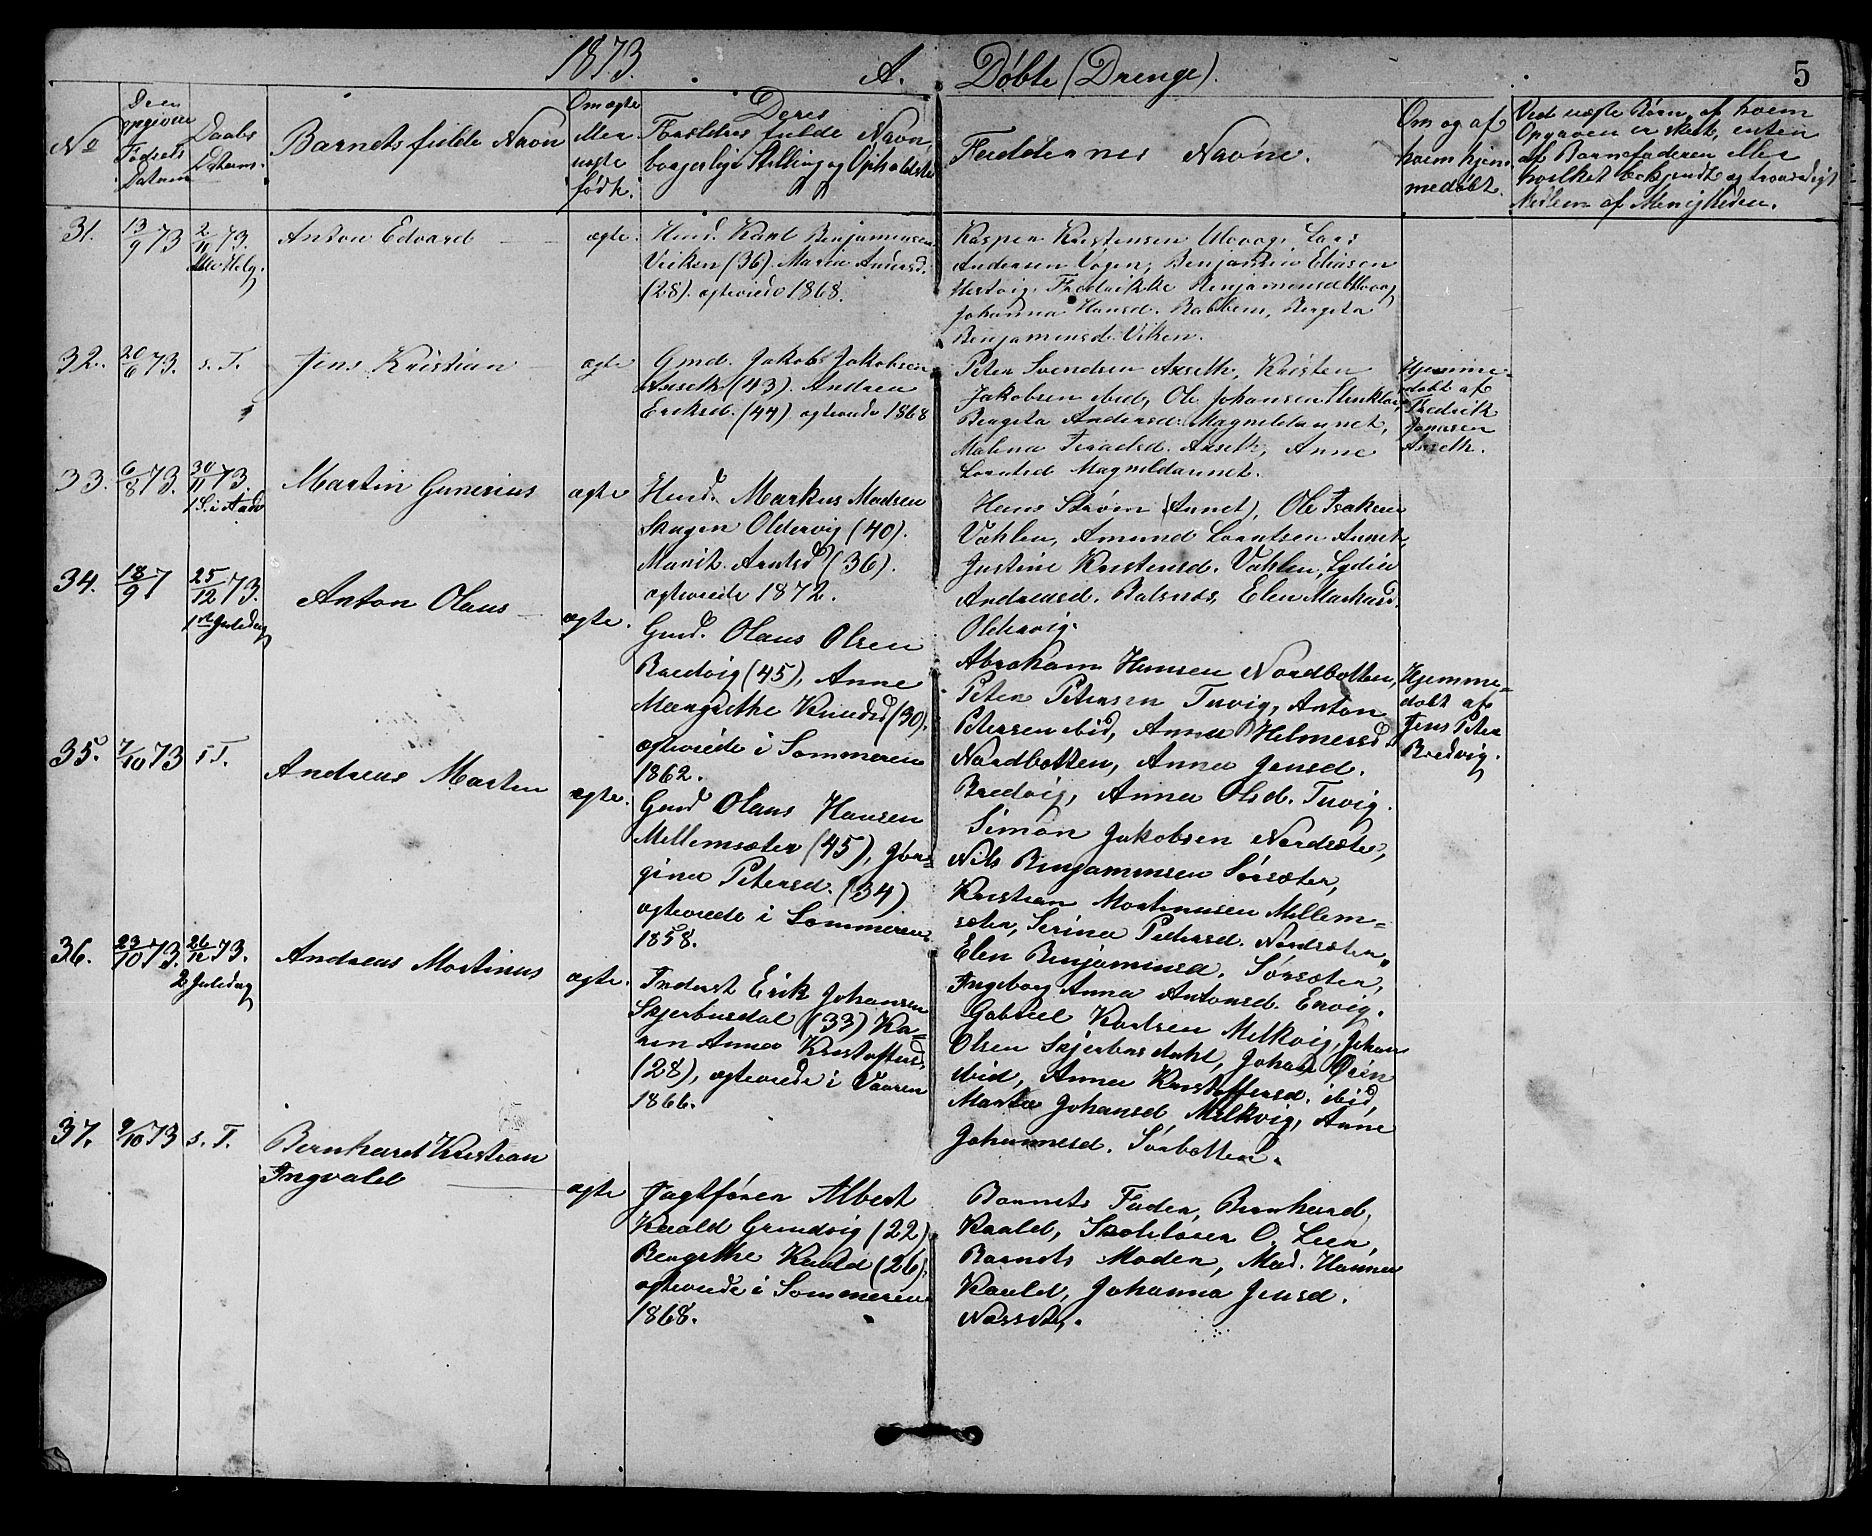 1873. A. Døbte (Drenge). 5
No
Den opgivne Fødsels Datum
Daabs Datum.
Barnets fulde Navn
Om ægte eller uægte født.
Deres Forældres fulde Navn, borgerlige Stilling og Opholdsted
Faddernes Navne.
Om og af hvem hjemmedøbt.
Ved uægte Børn, af hvem Opgaven er skeet, enten af Barnefaderen eller hvilket bekjendt og troværdigt Medlem af Menigheden.
31. 13/9 73 2/11 73. Alle Helg.
Anton Edvard
ægte.
Husd. Karl Benjaminsen
Viken (36). Maria Andersd.
(28). ægteviede 1868.
Kasper Kristensen Ulvvog, Lars
Andersen Vogen, Benjamin Eliasen
Hestvig, Fredrikke Benjaminsd Ulvvog
Johanna Hansd. Bakken, Bergita
Benjaminsd. Viken.
32. 20/6 73. s. T.
Jens Kristian
ægte
Gmd. Jakob Jakobsen
Axseth (43). Andrea
Eriksd. (44). ægteviede 1868
Peter Svendsen Axseth, Kristen
Jakobsen ibid, Ole Johansen
Bergita Andersd. Magnildaunet,
Malena Axseth, Anne
Lorntsd Magnildaunet.
Hjemme-
døbt af
Fredrik
Jonasen
Axseth.
33. 6/8 73. 30/11 73. 1 S. i Adv
Martin Gunerius
ægte
Husd. Markus Madsen
Skagen Oldervig (40).
Marit Arntsd (36).
ægteviede 1872.
Hans Strøm (Aunet), Ole Isaksen
Vahlen, Amund Lorntsen Aunet,
Justine Kristensd. Vahlen, Lydia
Andreasd. Balsnes, Elen Markusd.
Oldervig.
34. 18/9 7 25/12 73. 1ste Juledag
Anton Olaus
ægte.
Gmd. Olaus Olsen
Bredvig (45), Anne
Margrethe Knudsd (30),
ægteviede i Sommeren
1862.
Abraham Hansen Nordbotten,
Peter Petersen Tervig, Anton
Petersen ibid, Anna Helmersd.
Nordbotten, Anna Jensd.
Bredvig, Anna Olsd. Tervig.
Hjemme-
døbt af
Jens Peter
Bredvig.
35. 7/10 73 s T.
Andreas Martin
ægte.
Gmd Olaus Hansen
Mellemsæter (45), Jør-
gina Petersd. (34)
ægteviede i Sommeren
1858.
Simon Jakobsen Nordsæter,
Nils Benjaminsen Sørsæter,
Kristian Mortinusen Mellem-
sæter, Serina Pedersd. Nordsæter,
Elen Benjaminsd. Sørsæter,
Ingeborg Anna Antonsd. Ervig.
36. 23/10 73. 26/12 73. 2 Juledag
Andreas Mortinus
ægte.
Inderst Erik Johansen
Skjerbusdal (33) Ka-
ren Anna Kristoffersd.
(28), ægteviede i Vaaren
1866.
Gabriel Karlsen Melkvig, Johan
Olsen Skjerbusdahl, Johan Øien
ibid, Anna Kristoffersd. ibid,
Marta Johansd Melkvig, Anne
Johannesd. Sørbotten.
37. 9/10 73 s. T.
Bernhard Kristian
Ingvald
ægte
Jagtfører Albert
Kaald Grindvig (22)
Bergithe Kaald (26),
ægteviede i Sommeren
1868.
Barnets Fader, Bernhard
Kaald, Skolelærer O. Leer,
Barnets Moder, Mad. Hanna
Kaald, Johanna Jensd.